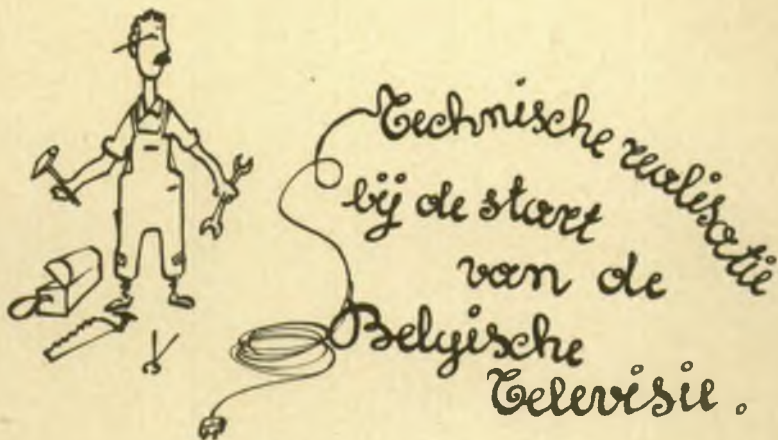 Technische realisatie
bij de start
van de
Belgische
Televisie.